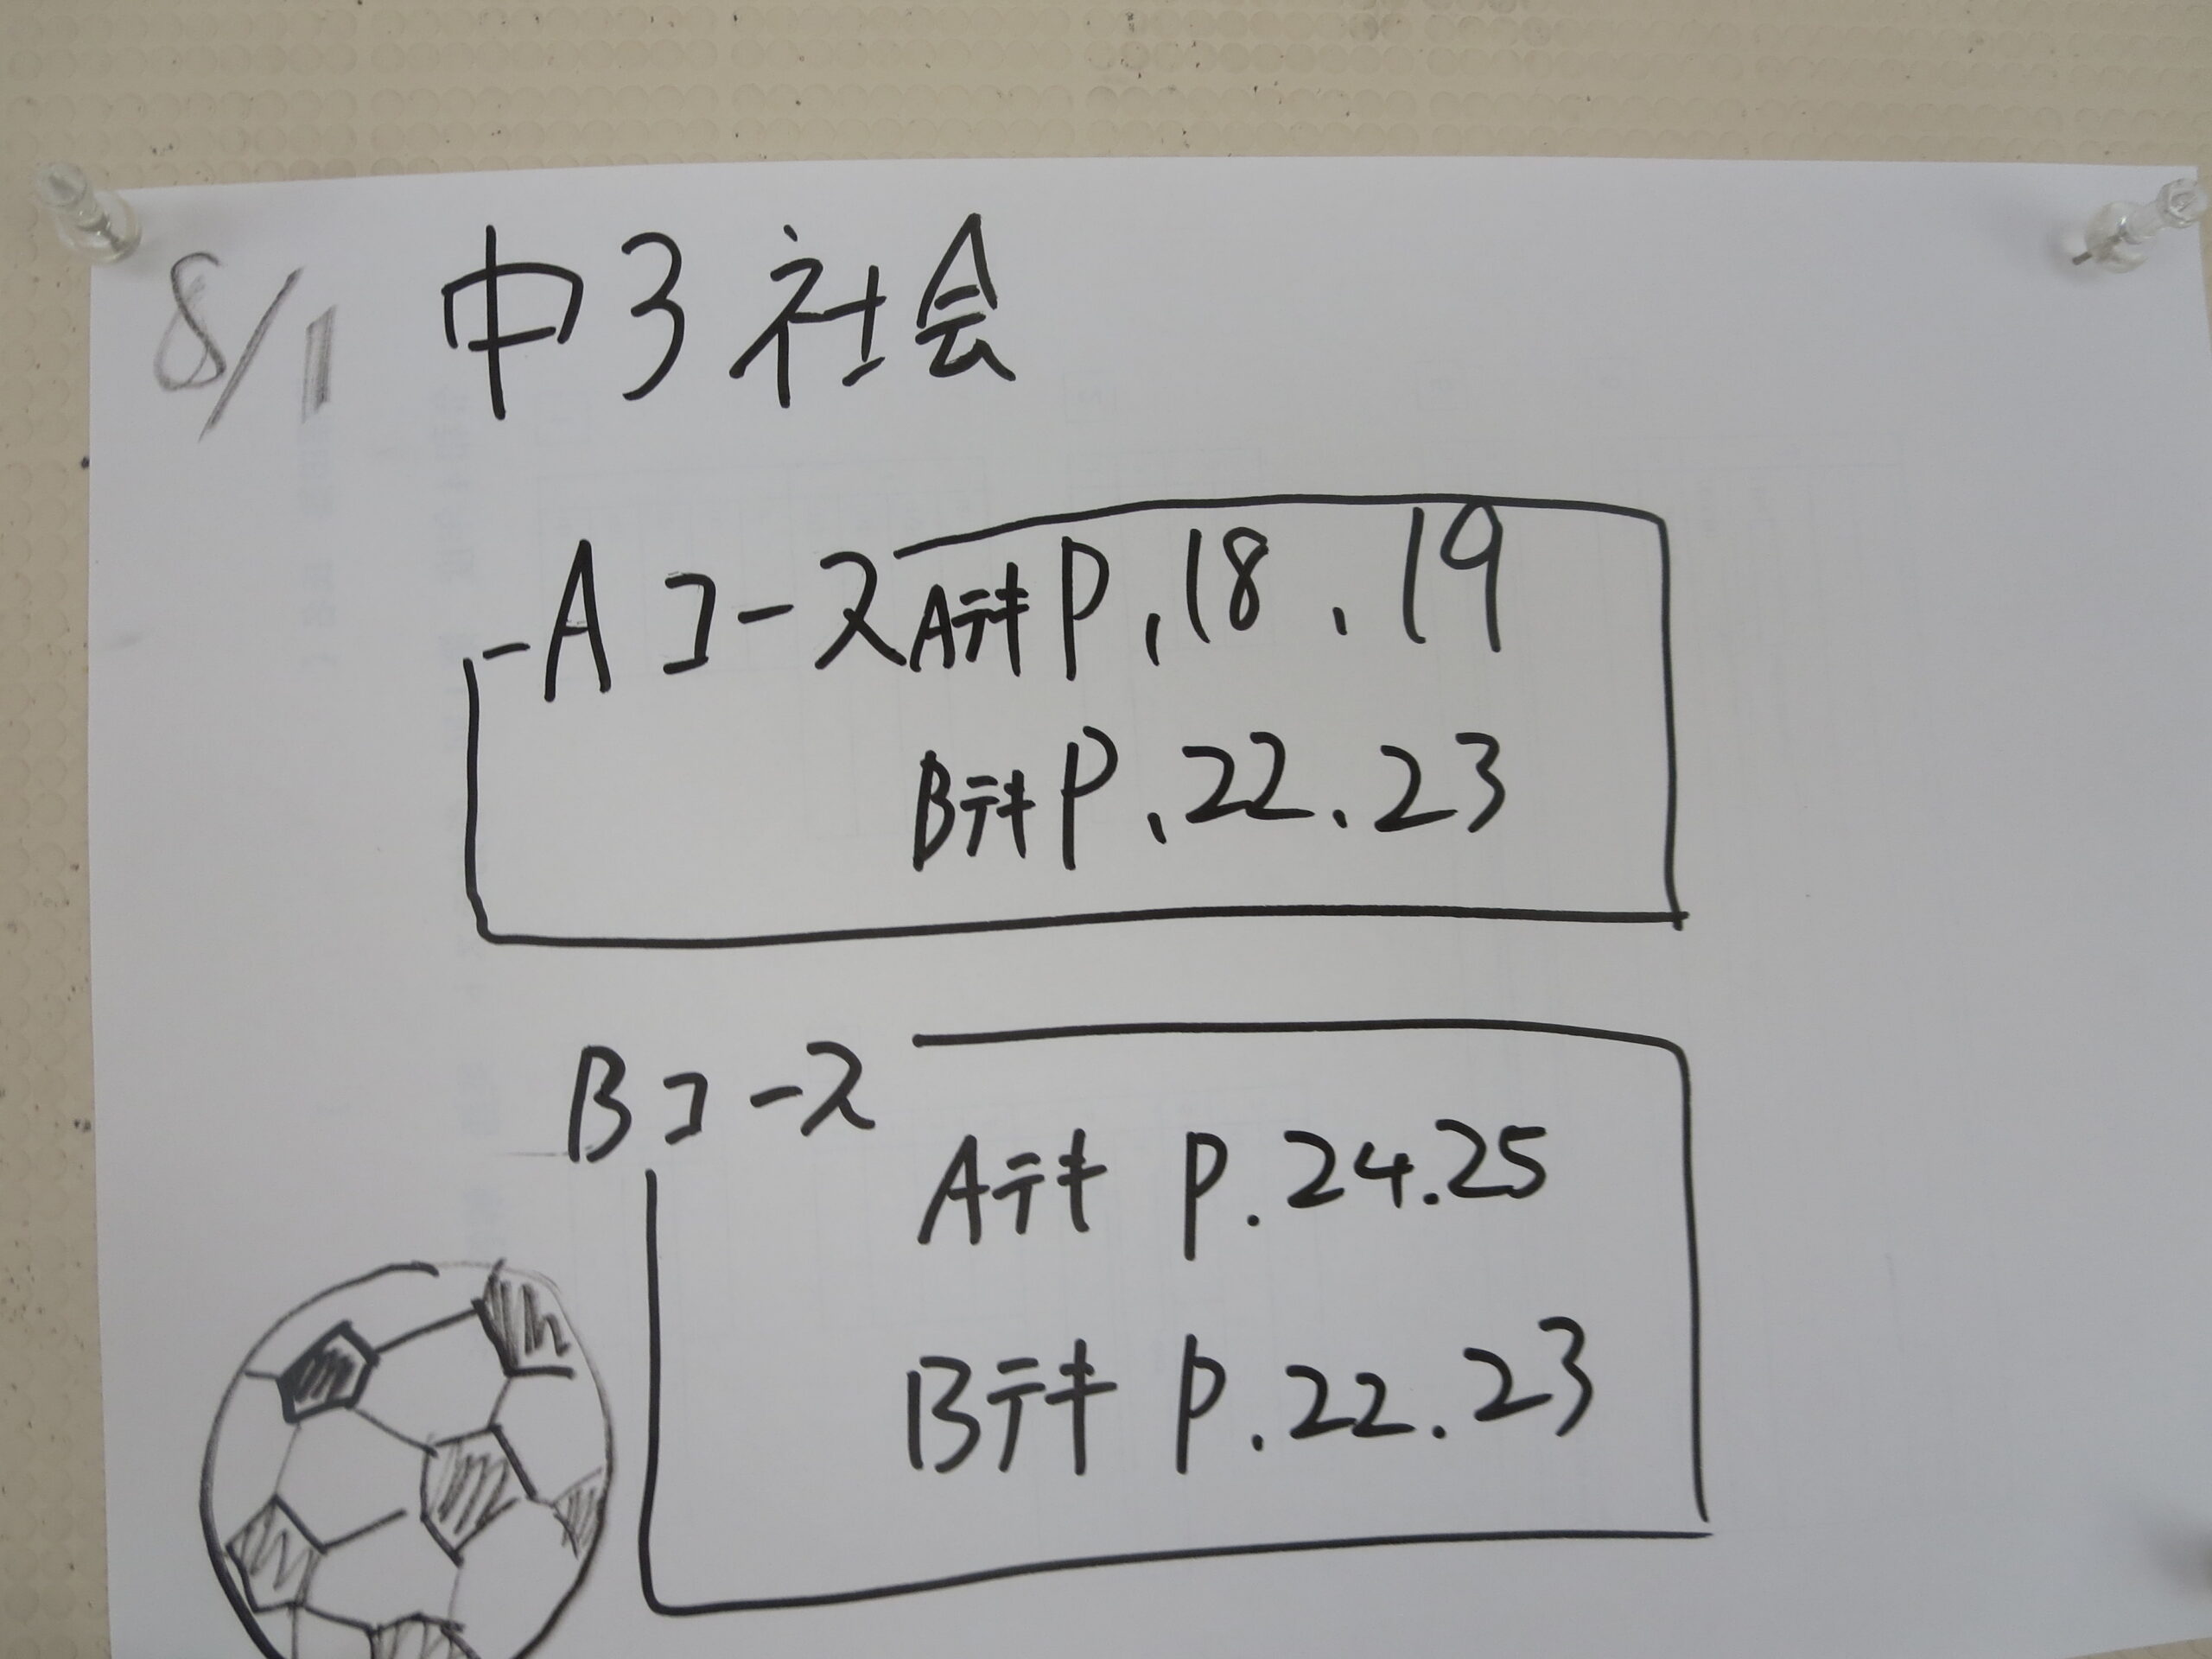 8/1 中3社会
Aコース Aテキ P.18.19
Bテキ P.22.23
Bコース
Aテキ P.24.25
Bテキ P.22.23